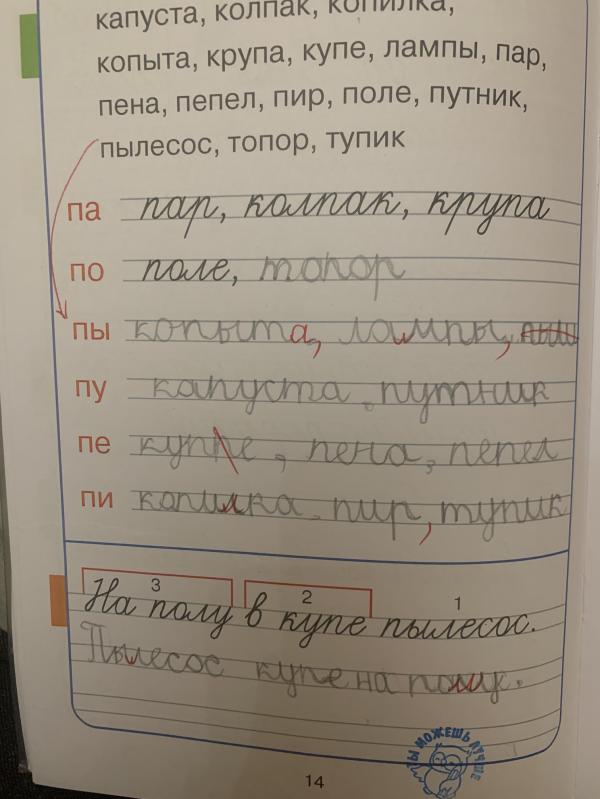 капуста, колпак, копилка,
копыта, крупа, купе, лампы, пар,
пена, пепел, пир, поле, путник,
пылесос, топор, тупик
па пар, колпак, крупа
по поле, топор
пы копыта, лампы,
пу капуста, путник
пе купе, пена, пепел
пи копилка. пир, тупик
3 2 1
На полу в купе пылесос.
Пылесос купе на полу.
ТЫ МОЖЕШЬ ЛУЧШЕ
14